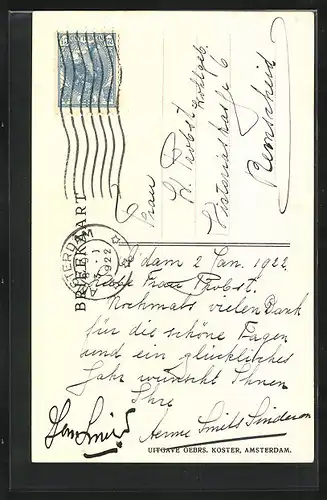 BRIEFKAART
AMSTERDAM
1922
Frau
H. Probst Wohlgeb.
Victoriastrasse 6
Remscheid
A'dam 2 Jan. 1922.
Liebe Frau Probst.
Nochmals vielen Dank
für die schöne Tagen
und ein glückliches
Jahr wünscht Ihnen
Ihre
Smits
UITGAVE GEBRS. KOSTER, AMSTERDAM.